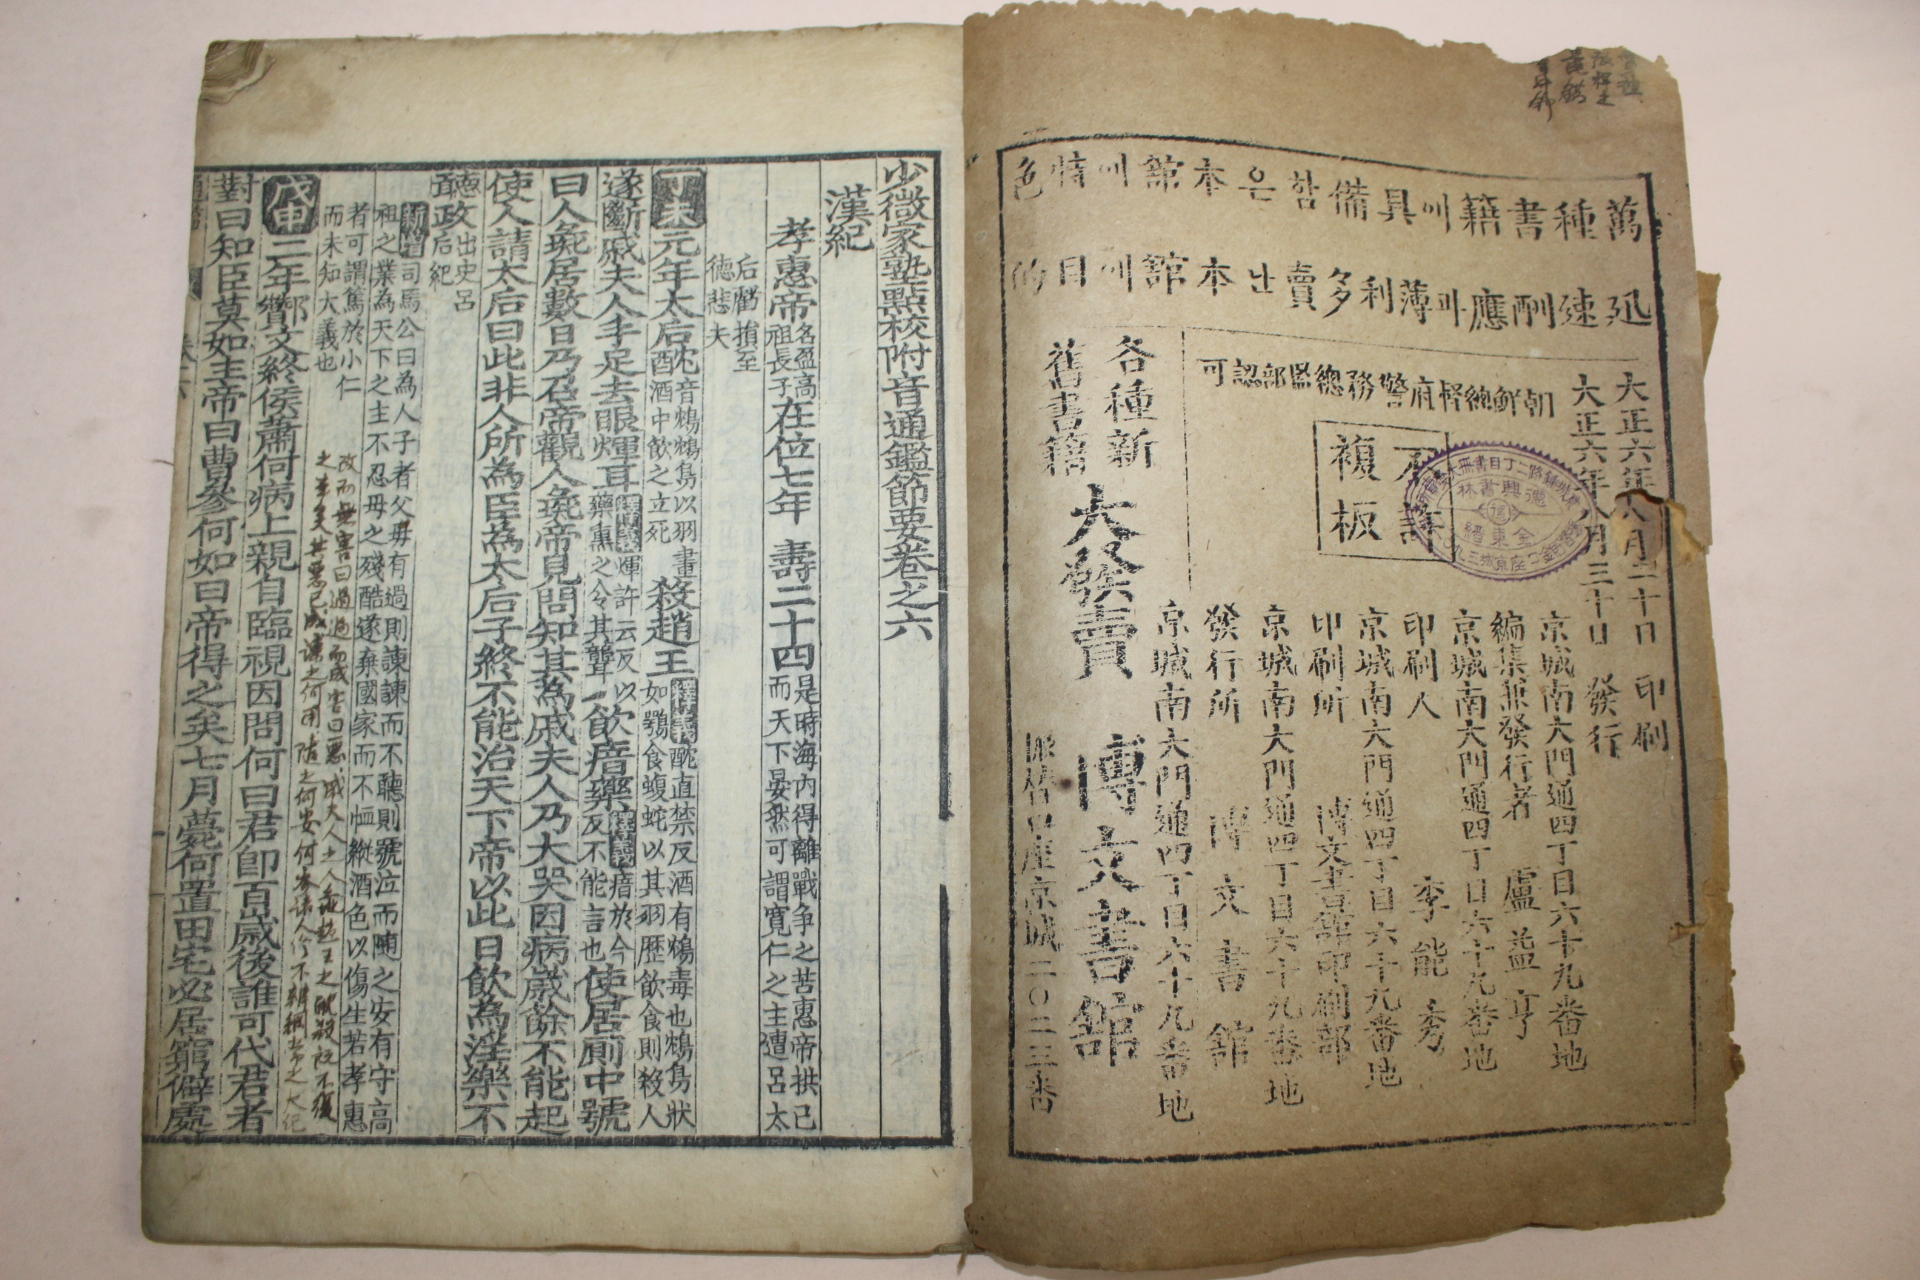 萬種書籍에具備함은本館에特色
迅速酬應과薄利多賣 本館 目的
大正六年八月二十日 印刷
大正六年八月三十日 發行
朝鮮總督府警務總監部認可
不許
複板
德興書林
金東縉
京城南大門通四丁目六十九番地
編集兼發行者 盧益亨
京城南大門通四丁目六十九番地
印刷人 李能秀
京城南大門通四丁目六十九番地
印刷所 博文書館印刷部
京城南大門通四丁目六十九番地
發行所 博文書館
京城南大門通四丁目六十九番地
各種新
舊書籍
大發賣 博文書館
振替口座京城二〇二三番
少微家塾點校附音通鑑節要卷之六
漢紀
孝惠帝名盈高祖長子在位七年 壽二十四是時海內得離戰争之苦惠帝拱已而天下晏然可謂寬仁之主遭呂太
后虧損至德悲夫
丁未元年太后酖音鴆鴆鳥以羽畫酒中飲之立死殺趙王釋義酖直禁反酒有鴆毒也鴆鳥狀如鶚食蝮蛇以其羽歷飲食則殺人
遂斷戚夫人手足去眼煇耳釋義煇許云反以藥熏之令其聾飲瘖藥釋義瘖於今反不能言也使居廁中號
曰人彘居數日乃召帝觀人彘帝見問知其為戚夫人乃大哭因病歲餘不能起
使人請太后曰此非人所為臣為太后子終不能治天下帝以此日飲為淫樂不
聽政出史呂后紀
新增司馬公曰為人子者父母有過則諫諫而不聽則號泣而隨之安有守高
祖之業為天下之主不忍母之殘酷遂棄國家而不恤縱酒色以傷生若孝惠
者可謂篤於小仁
而未知大義也
戊申二年酇文終侯蕭何病上親自臨視因問何曰君卽百歲後誰可代君者
對曰知臣莫如主帝曰曹參何如曰帝得之矣七月薨何置田宅必居窮僻處